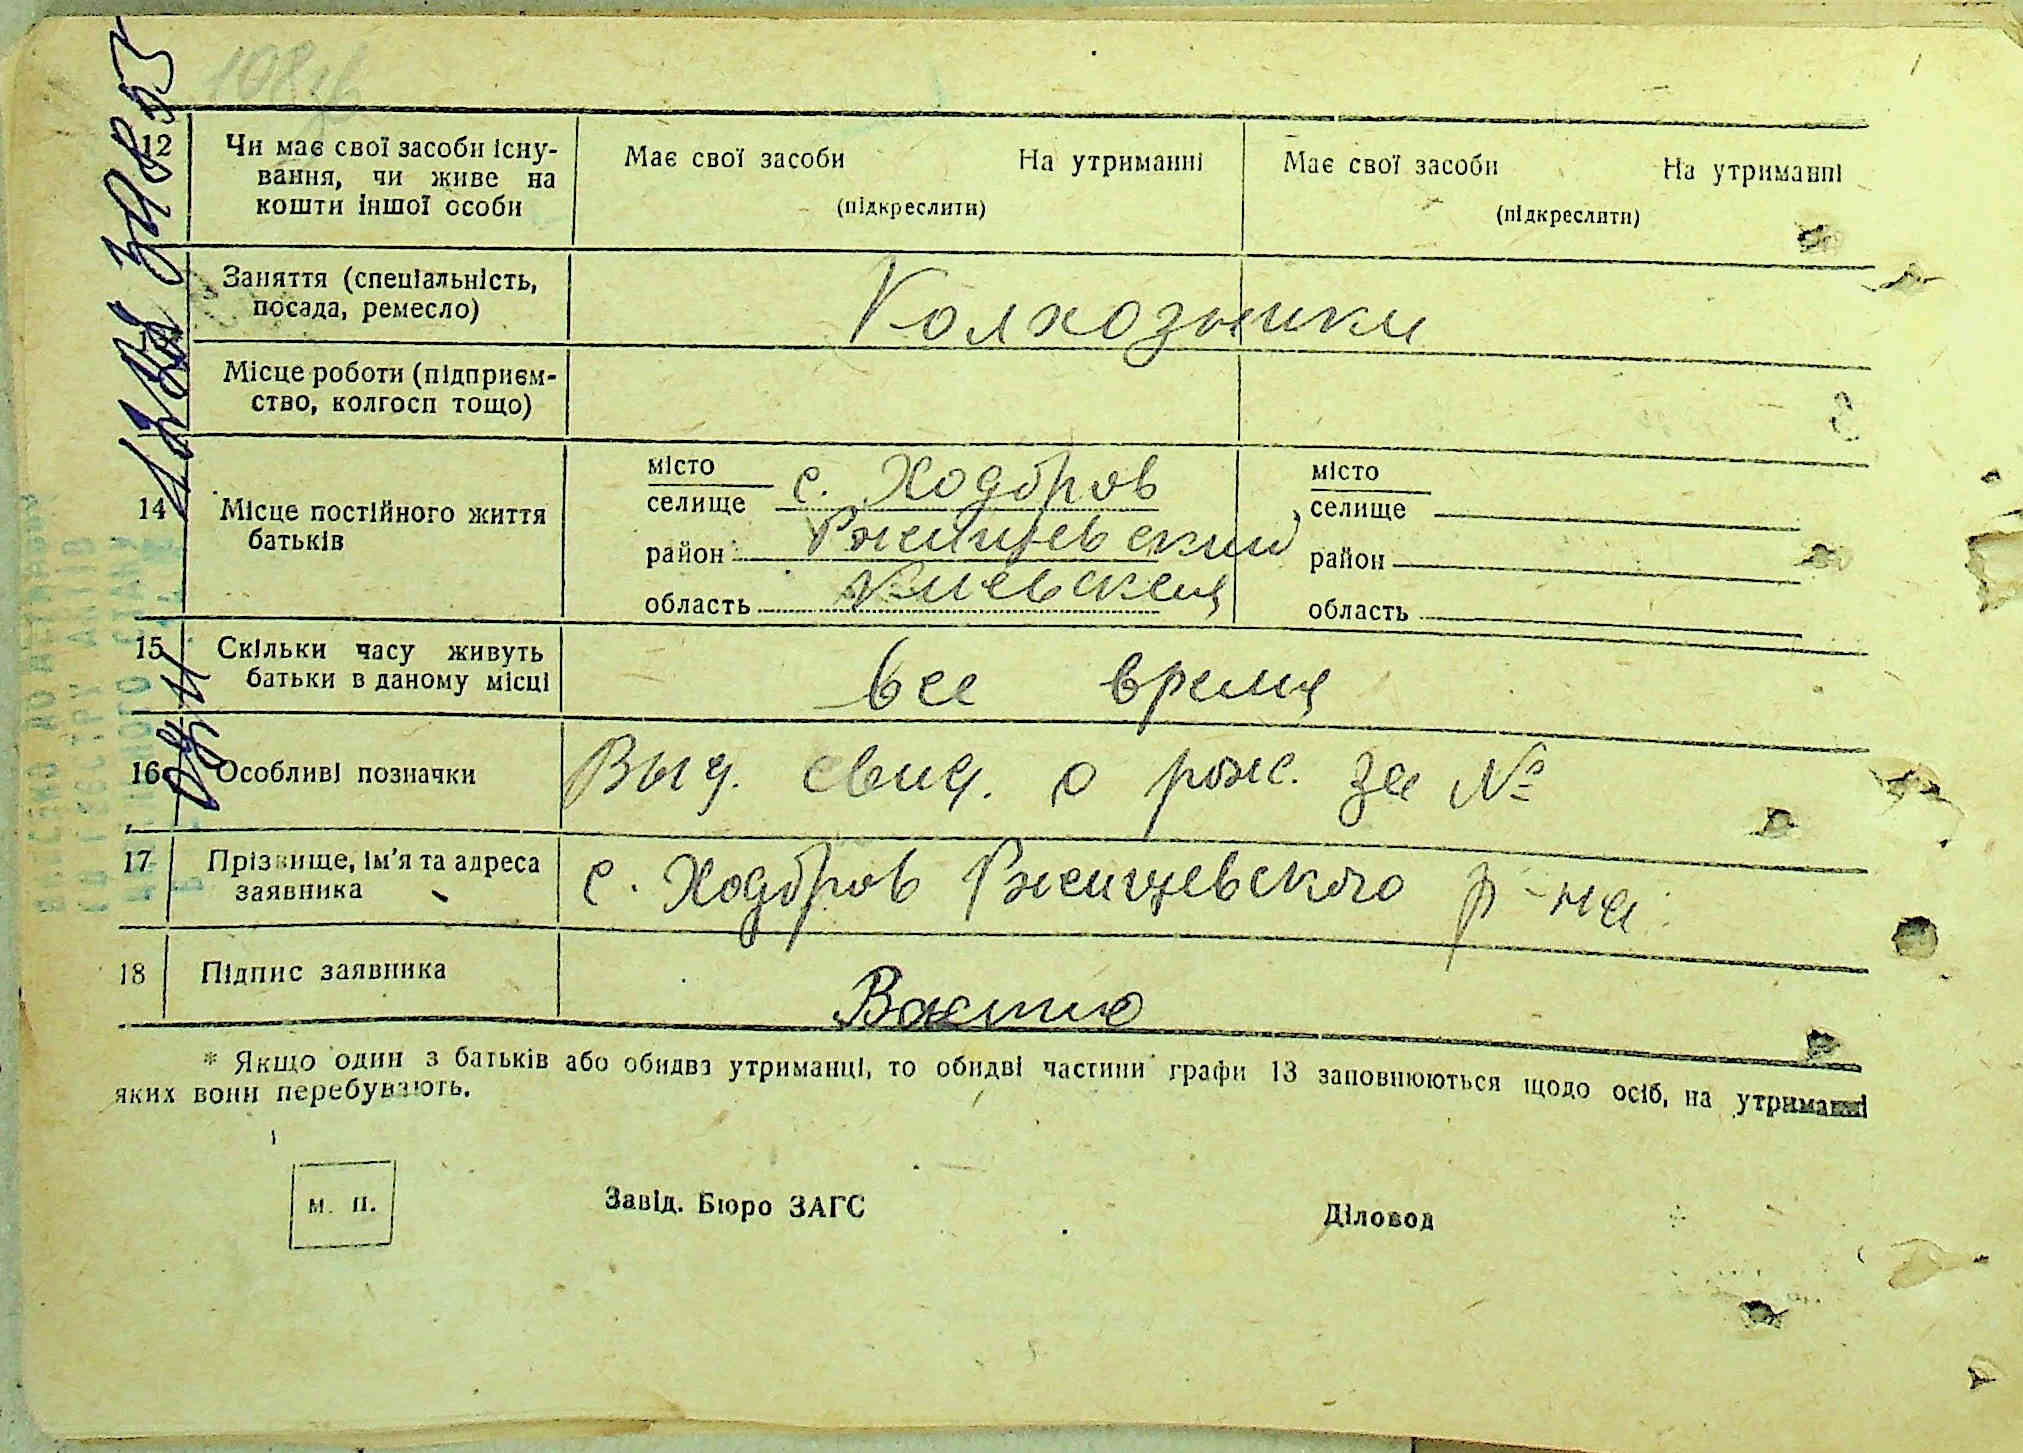 108зв
12 Чи має свої засоби існу-
вання, чи живе на
кошти іншої особи
Має свої засоби На утриманні
(підкреслити)
Має свої засоби На утриманні
(підкреслити)
Заняття (спеціальність,
посада, ремесло)
Колхозники
Місце роботи (підприєм-
ство, колгосп тощо)
14 Місце постійного життя
батьків
місто
селище с. Ходоров
район Ржищевский
область Киевская
місто
селище
район
область
15 Скільки часу живуть
батьки в даному місці
все время
16 Особливі позначки
Выд. свид. о рож. за №
17 Прізвище, ім’я та адреса
заявника
с. Ходоров Ржищевского р-на
18 Підпис заявника
* Якщо один з батьків або обидва утриманці, то обидві частини графи 13 заповнюються щодо осіб, на утриманні
яких вони перебувають.
м. п.
Завід. Бюро ЗАГС
Діловод